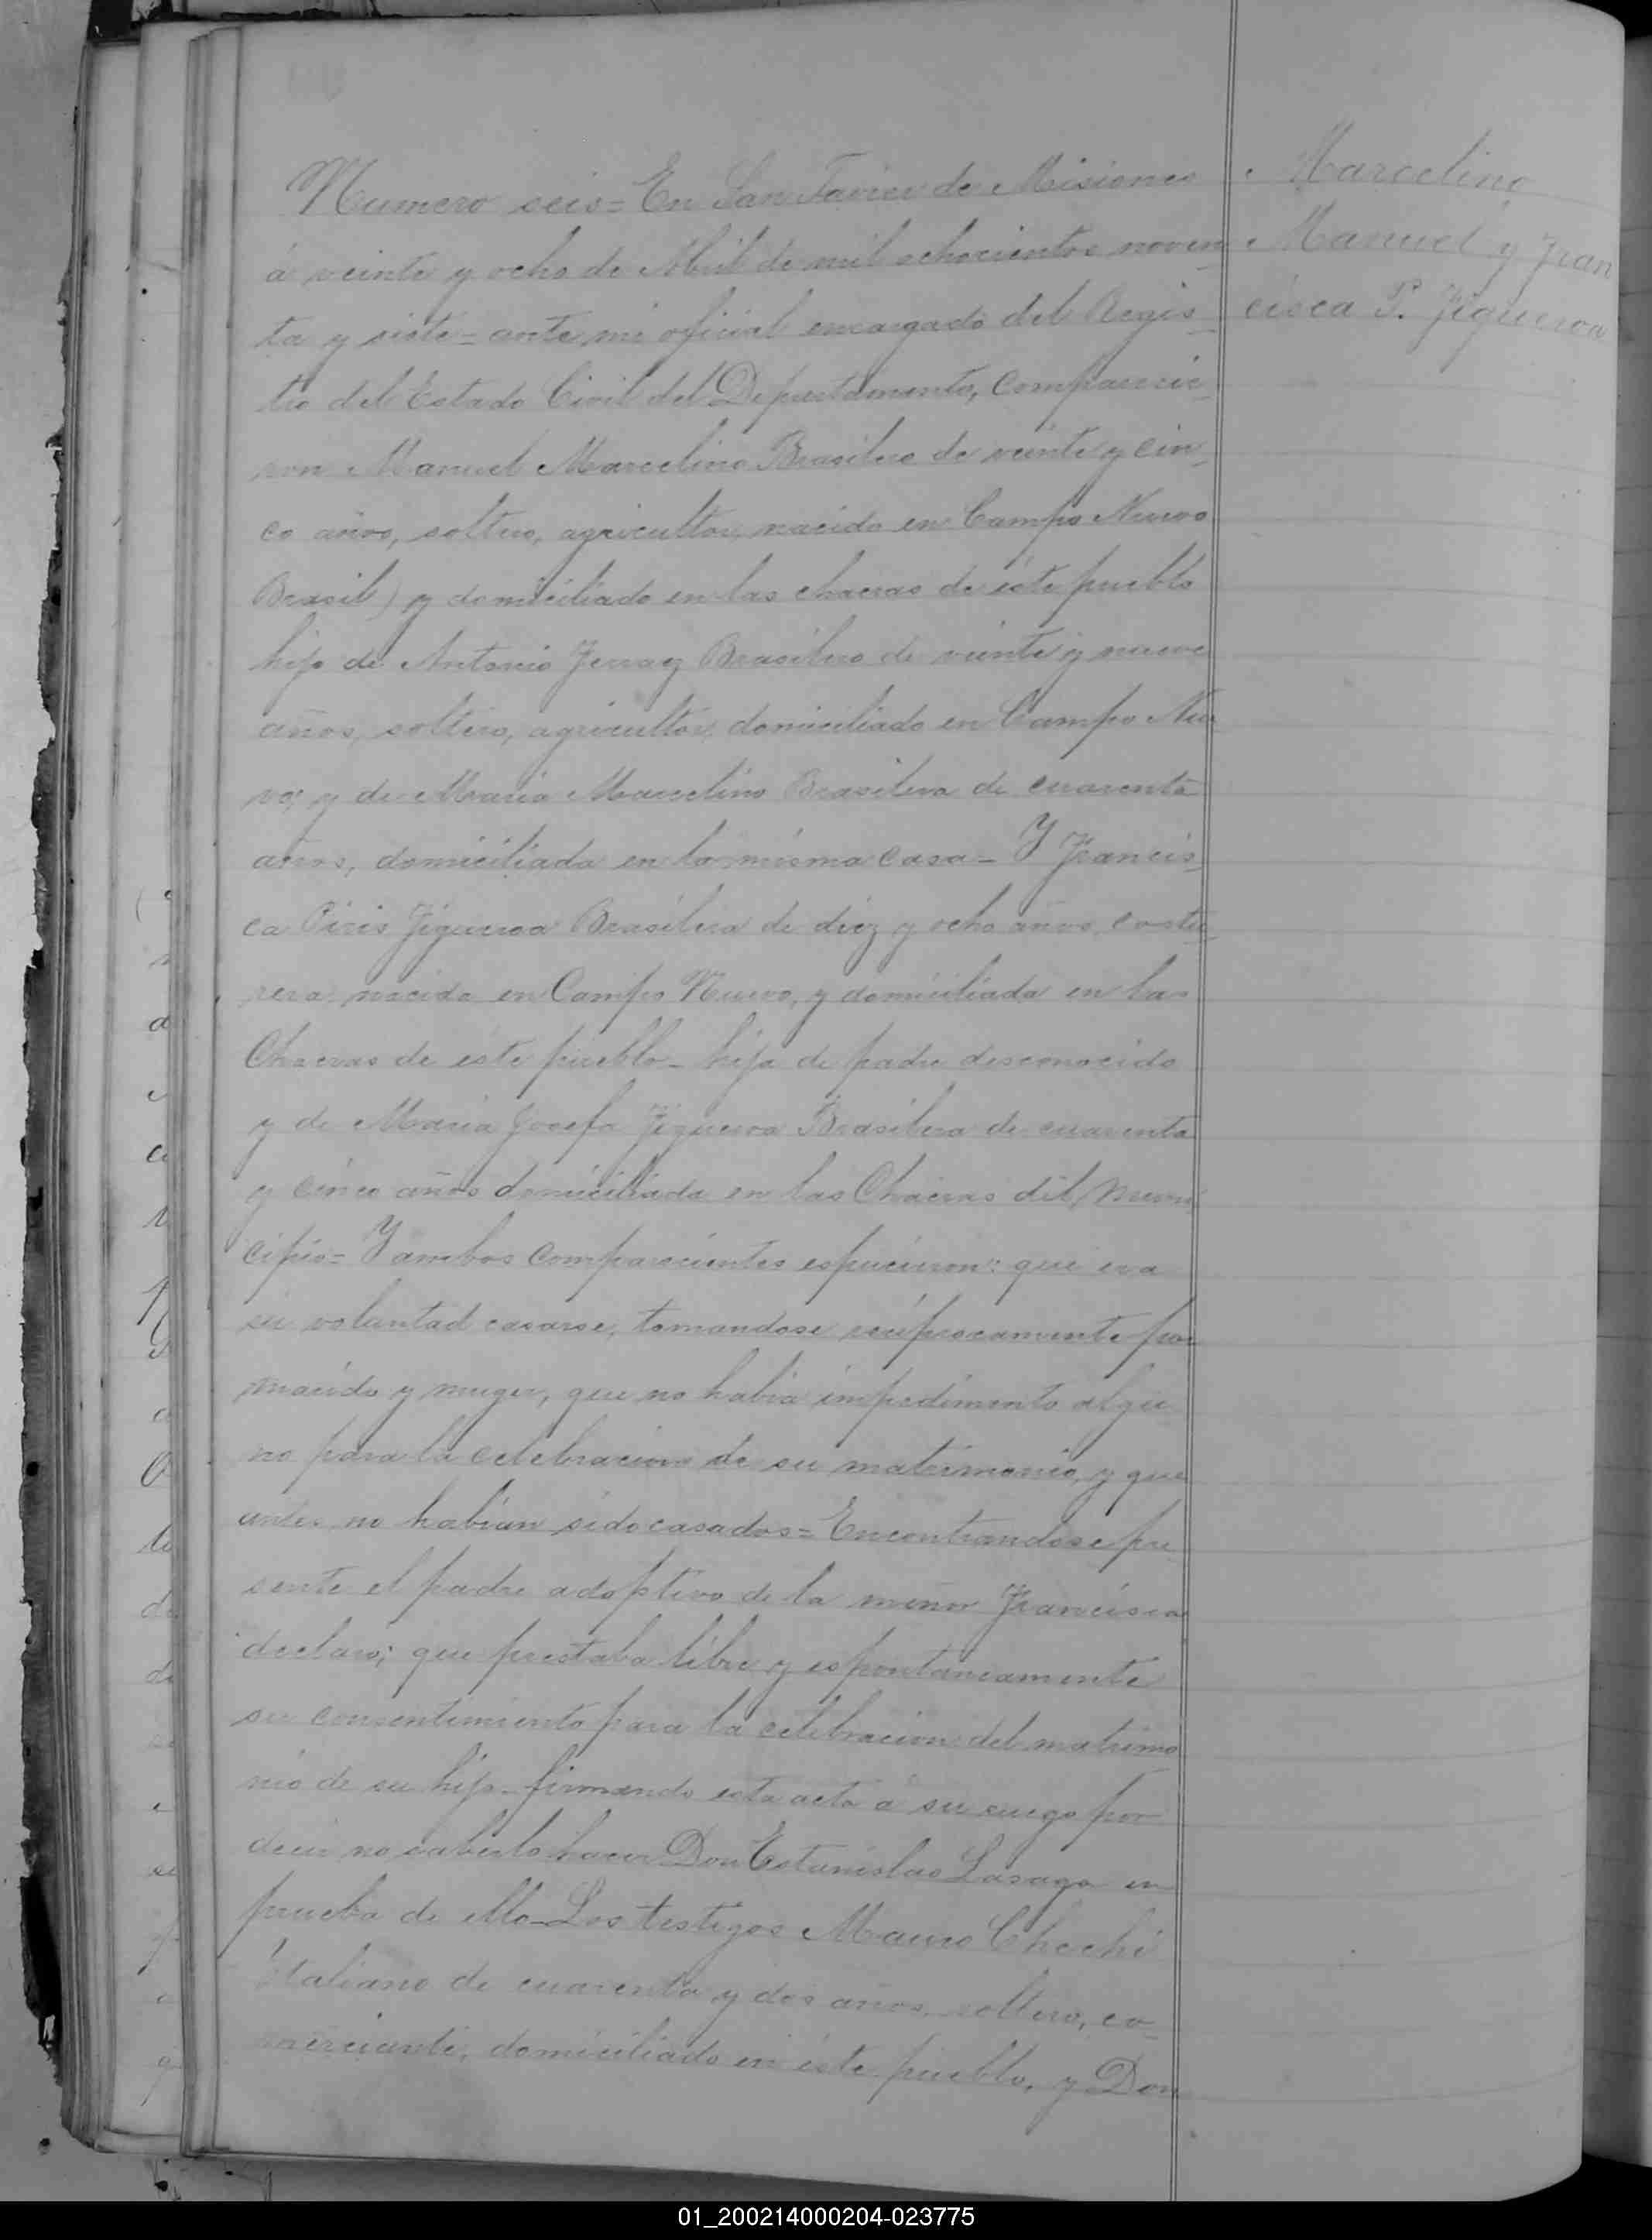 Marcelino
Manuel y Fran
cisca P. Figueroa
Numero seis= En San Javier de Misiones
á veinte y ocho de Abril de mil ochocientos noven
ta y siete= ante mi oficial encargado del Regis_
tro del Estado Civil del Departamento, comparecie_
ron Manuel Marcelino Brasilero de veinte y cin_
co años, soltero, agricultor, nacido en Campo Nuevo
Brasil) y domiciliado en las chacras de éste pueblo
hijo de Antonio Brasilero de veinte y nueve
años, soltero, agricultor domiciliado en Campo Nue
vo; y de Maria Marcelino Brasilera de cuarenta
años, domiciliada en la misma casa_ Y Francis_
ca Piris Figueroa Brasilera de diez y ocho años, costu_
rera nacida en Campo Nuevo, y domiciliada en las
Chacras de este pueblo_ hija de padre desconocido
y de Maria Josefa Figueroa Brasilera de cuarenta
y cinco años domiciliada en las Chacras del Muni
cipio= Y ambos comparecientes espucieron: que era
su voluntad casarse, tomandose reciprocamente por
marido y muger, que no habia impedimento algu
no para la celebracion de su matrimonio, y que
antes no habian sido casados= Encontrandose pre
sente el padre adoptivo de la menor Francisca
declaro; que prestaba libre y espontaneamente
su consentimiento para la celebracion del matrimo
nio de su hija_ firmando esta acta á su ruego por
decir no saberlo hacer Don Estanislao Lasaga en
prueba de ello_ Los testigos Mauro Chechi
Italiano de cuarenta y dos años, soltero, co_
merciante, domiciliado en éste pueblo, y Don
01_200214000204-023775